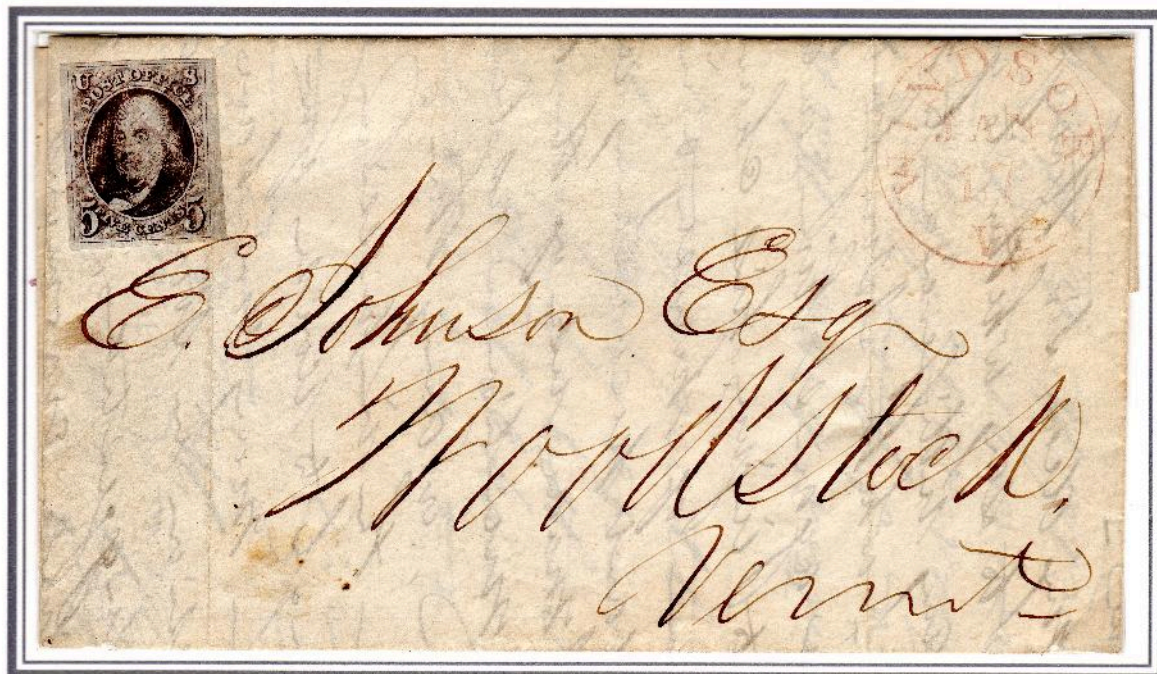 U S
POST OFFICE
5 FIVE CENTS 5
WINDSOR
JAN
17
E. Johnson Esq.
Woodstock,
Vermt